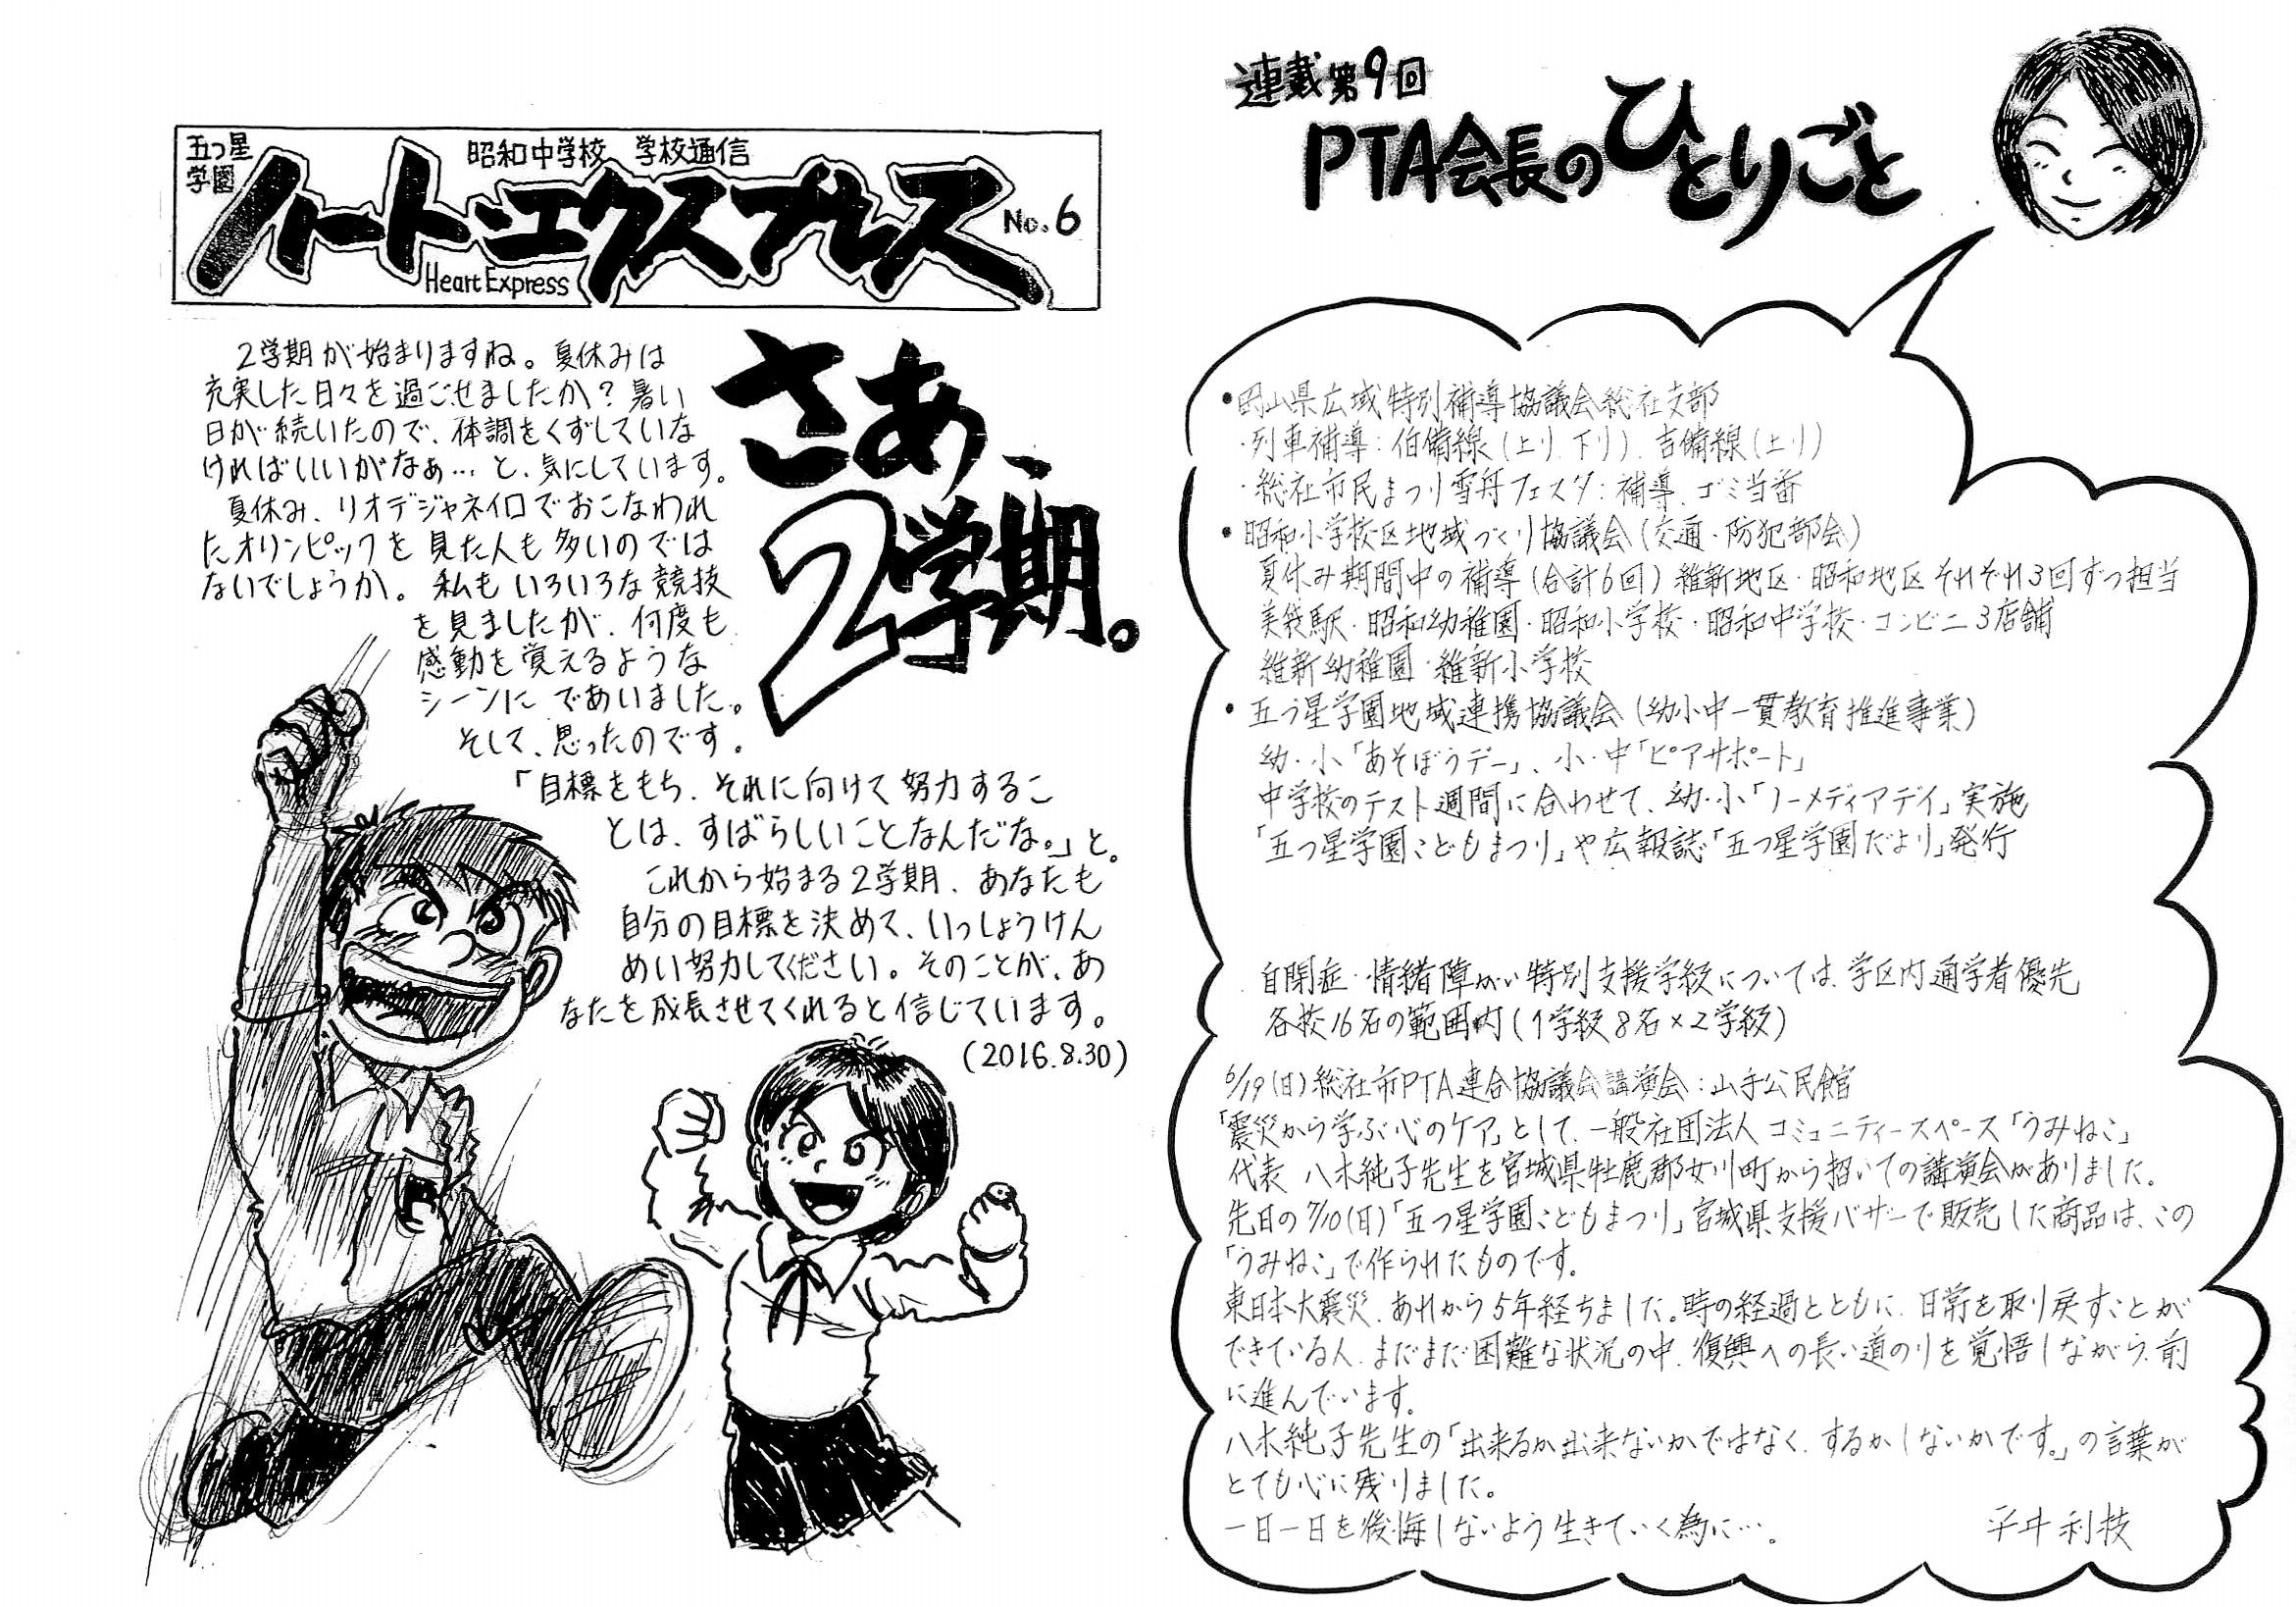 五つ星
学園
昭和中学校 学校通信
ハート・エクスプレス
Heart Express
No.6
さあ、
2学期。
2学期が始まりますね。夏休みは
充実した日々を過ごせましたか？暑い
日が続いたので、体調をくずしていな
ければいいがなぁ…と、気にしています。
夏休み、リオデジャネイロでおこなわれ
たオリンピックを見た人も多いのでは
ないでしょうか。私もいろいろな競技
を見ましたが、何度も
感動を覚えるような
シーンにであいました。
そして、思ったのです。
「目標をもち、それに向けて努力するこ
とは、すばらしいことなんだな。」と。
これから始まる2学期、あなたも
自分の目標を決めて、いっしょうけん
めい努力してください。そのことが、あ
なたを成長させてくれると信じています。
(2016.8.30)
連載第9回
PTA会長のひとりごと
•岡山県広域特別補導協議会総社支部
・列車補導：伯備線(上り、下り)、吉備線(上り)
・総社市民まつり雪舟フェスタ：補導、ゴミ当番
•昭和小学校区地域づくり協議会(交通・防犯部会)
夏休み期間中の補導(合計6回)維新地区・昭和地区それぞれ3回ずつ担当
美袋駅・昭和幼稚園・昭和小学校・昭和中学校・コンビニ3店舗
維新幼稚園・維新小学校
•五つ星学園地域連携協議会(幼小中一貫教育推進事業)
幼・小「あそぼうデー」、小・中「ピアサポート」
中学校のテスト週間に合わせて、幼・小「ノーメディアデイ」実施
「五つ星学園こどもまつり」や広報誌「五つ星学園だより」発行
自閉症・情緒障がい特別支援学級については、学区内通学者優先
各校16名の範囲内(1学級8名×2学級)
6/19(日)総社市PTA連合協議会講演会：山手公民館
「震災から学ぶ心のケア」として、一般社団法人コミュニティースペース「うみねこ」
代表 八木純子先生を宮城県牡鹿郡女川町から招いての講演会がありました。
先日の7/10(日)「五つ星学園こどもまつり」宮城県支援バザーで販売した商品は、この
「うみねこ」で作られたものです。
東日本大震災、あれから5年経ちました。時の経過とともに、日常を取り戻すことが
できている人、まだまだ困難な状況の中、復興への長い道のりを覚悟しながら、前
に進んでいます。
八木純子先生の「出来るか出来ないかではなく、するかしないかです。」の言葉が
とても心に残りました。
一日一日を後悔しないよう生きていく為に…。
平井利技